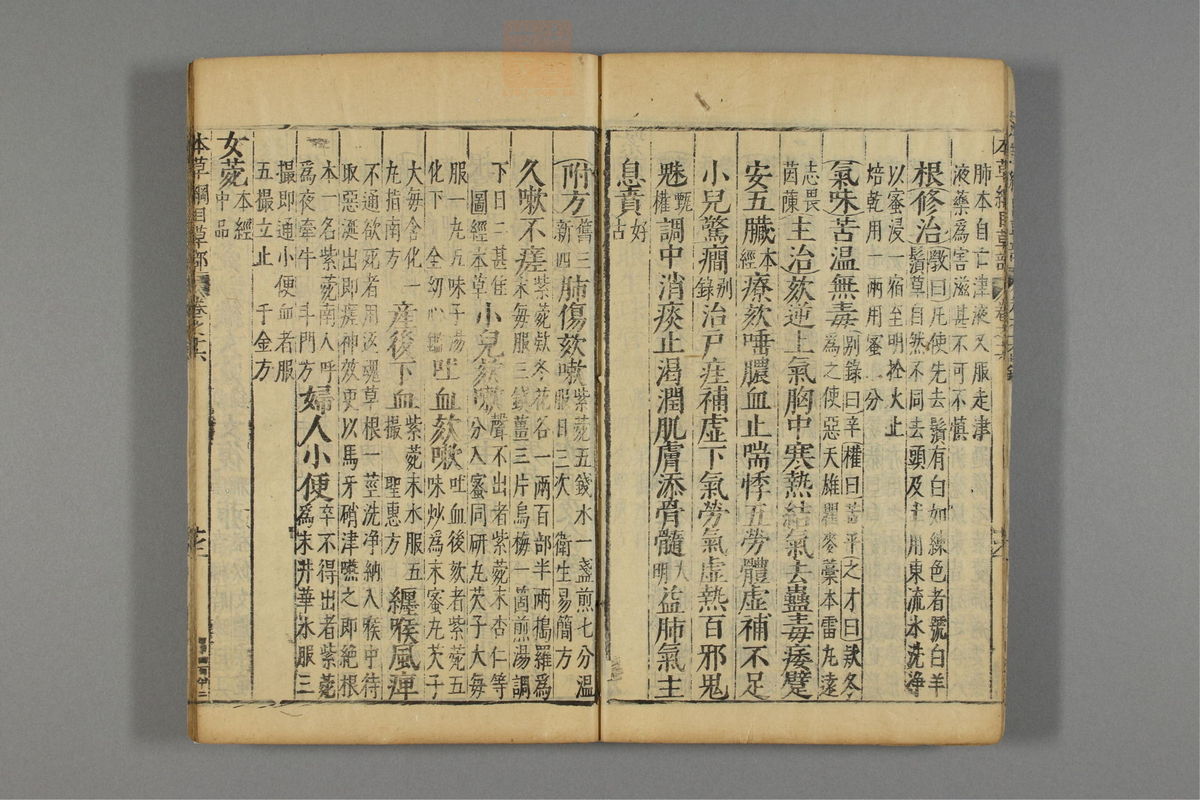 肺本自亡津液又服走津
液藥為害滋甚不可不慎
根修治斅曰凡使先去鬚有白如練色者號白羊
鬚草自然不同去頭及土用東流水洗淨
以蜜浸一宿至明於火上
焙乾用一兩用蜜二分
氣味苦温無毒別錄曰辛權曰苦平之才曰欵冬
為之使惡天雄瞿麥藁本雷丸遠
志畏茵蔯主治欬逆上氣胸中寒熱結氣去蠱毒痿躄
安五臟本經療欬唾膿血止喘悸五勞體虚補不足
小兒驚癇别錄治尸疰補虚下氣勞氣虚熱百邪鬼
魅甄權調中消痰止渴潤肌膚添骨髓大明益肺氣主
息賁好古
附方舊三新四肺傷欬嗽紫菀五錢水一盞煎七分温
服日三次衛生易簡方
久嗽不瘥紫菀欵冬花各一兩百部半兩搗羅為
末每服三錢薑三片烏梅一箇煎湯調
下日二甚佳圖經本草小兒欬嗽聲不出者紫菀末杏仁等
分入蜜同研丸芡子大每
服一丸五味子湯化下全幼心鑑吐血欬嗽吐血後欬者紫菀五
味炒為末蜜丸芡子
大每含化一丸指南方產後下血紫菀末水服五撮聖惠方纏喉風痺
不通欲死者用返魂草根一莖洗净納入喉中待
取惡涎出即瘥神效更以馬牙硝津嚥之即絕根
本一名紫菀南人呼為夜牽牛斗門方婦人小便卒不得出者紫菀
為末井華水服三
撮即通小便血者服
五撮立止千金方
女菀本經中品
本草綱目草部卷之十六